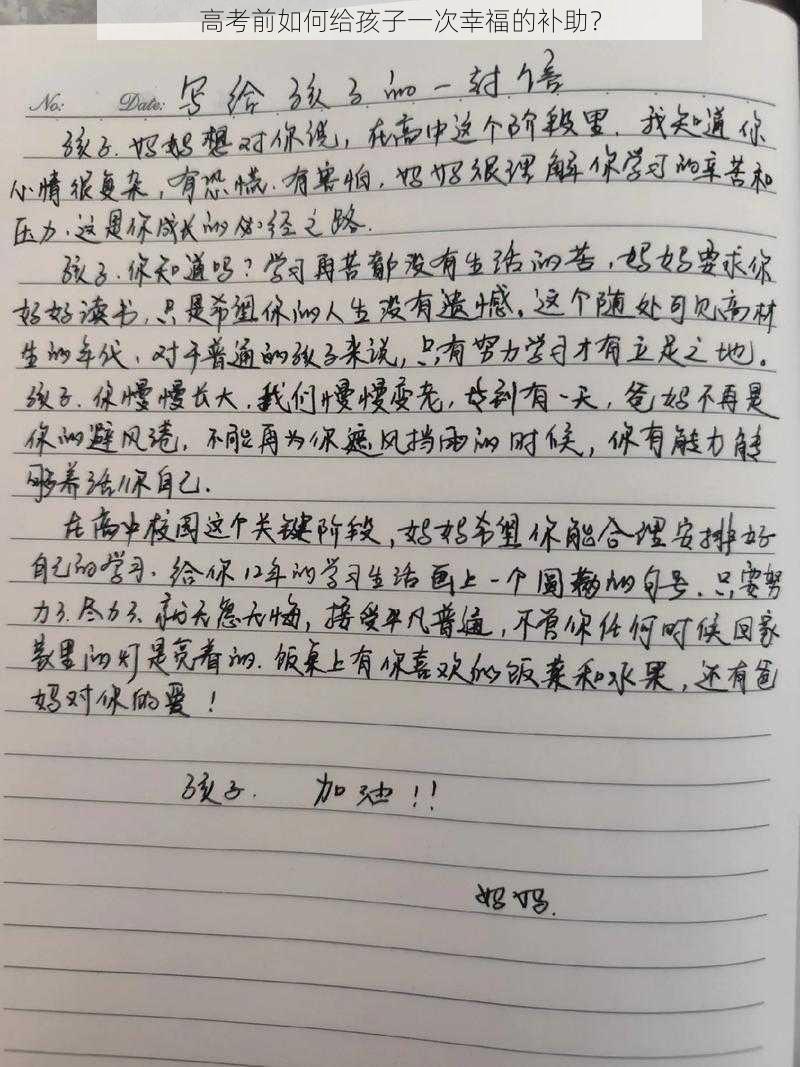 高考前如何给孩子一次幸福的补助？
No: Date: 写给孩子的一封信
孩子.妈妈想对你说，在高中这个阶段里.我知道你
心情很复杂，有恐慌.有害怕，妈妈很理解你学习的辛苦和
压力.这是你成长的必经之路.
孩子.你知道吗？学习再苦都没有生活的苦，妈妈要求你
好好读书，只是希望你的人生没有遗憾。这个随处可见高材
生的年代，对于普通的孩子来说，只有努力学习才有立足之地。
孩子.你慢慢长大.我们慢慢变老，战到有一天，爸妈不再是
你的避风港，不能再为你遮风挡雨的时候，你有能力能
够养活你自己.
在高中校园这个关键阶段，妈妈希望你能合理安排好
自己的学习.给你12年的学习生活画上一个圆满的句号.只要努
力了.尽力了.就无怨无悔，接受平凡普通，不管你任何时候回家
家里的灯是亮着的.饭桌上有你喜欢的饭菜和水果，还有爸
妈对你的爱！
孩子. 加油！！
妈妈.